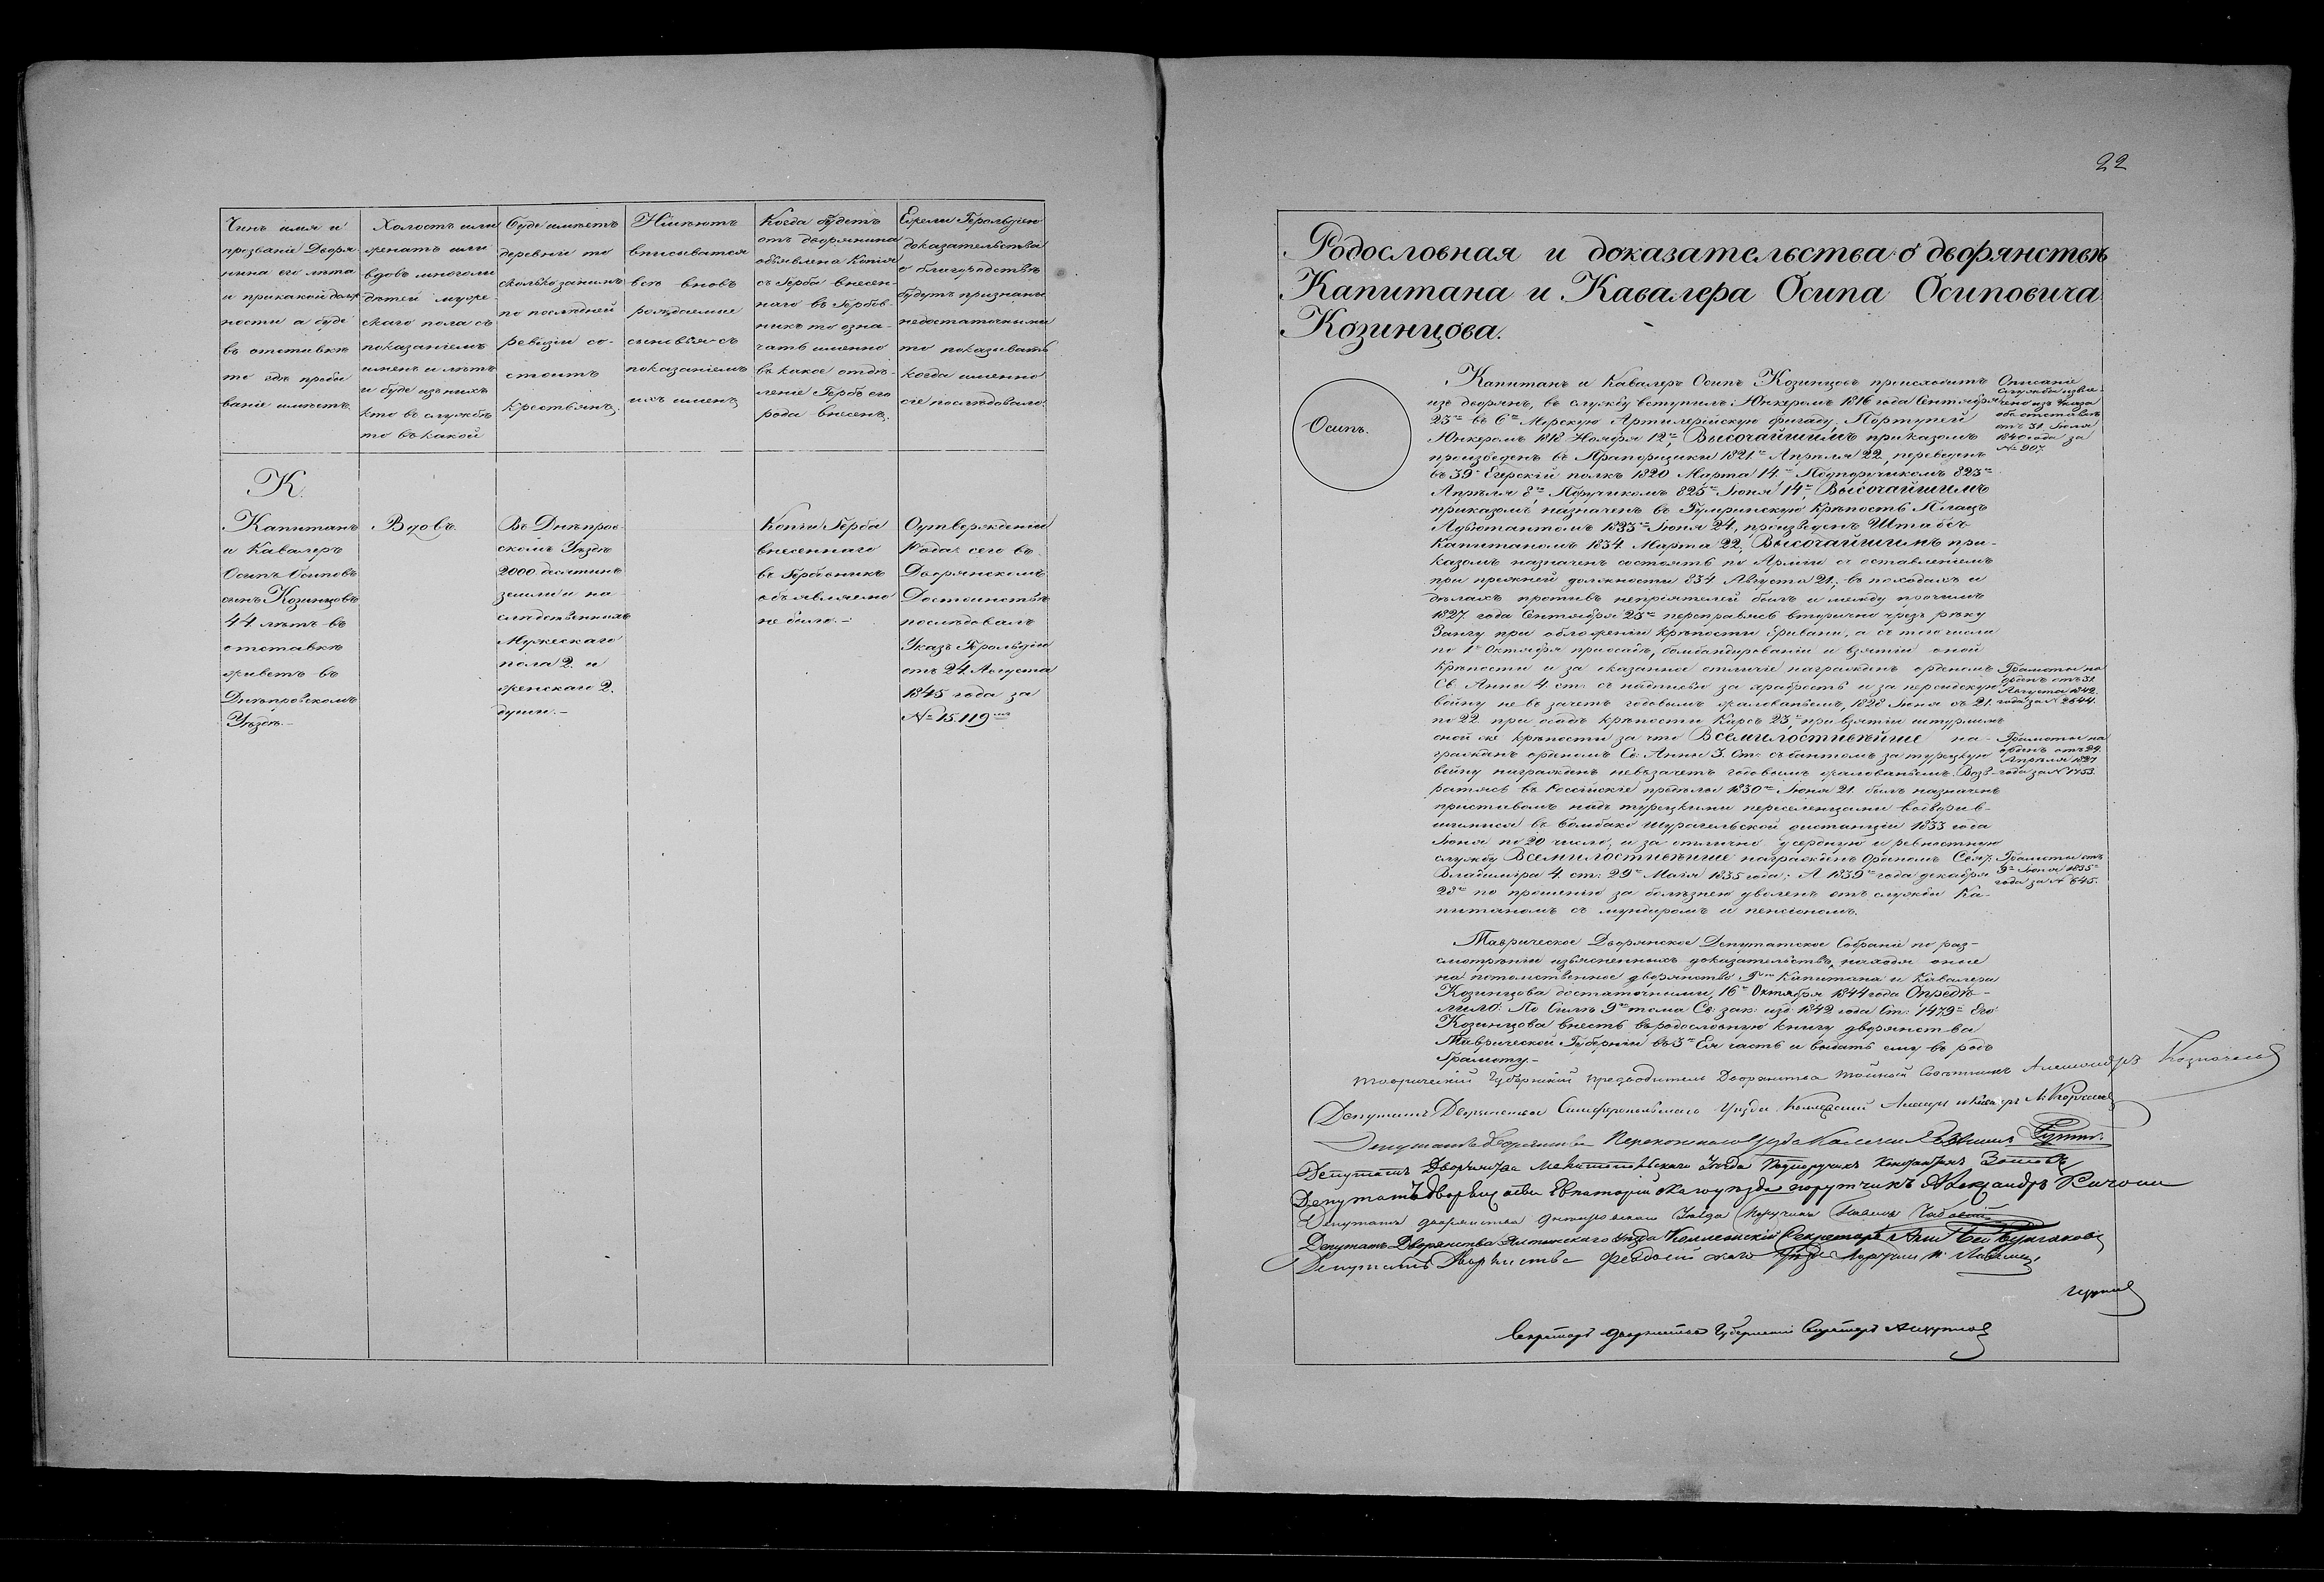 Чинъ имя и
прозваніе Дворя-
нина его лѣта
и при какой долж-
ности а буде
въ отставкѣ
то гдѣ пребы
ваніе имѣетъ
Холостъ или
женатъ или
вдовъ многоли
дѣтей муже-
скаго пола съ
показаніемъ
именъ и лѣтъ
и буде изъ нихъ
кто въ службѣ
то въ какой
буде имѣетъ
деревни то
сколько за нимъ
по послѣдней
ревизіи со-
стоитъ
крестьянъ.
Ниже
вписывается
всѣ вновь
рождаемые
сыновья съ
показаніемъ
ихъ именъ
Когда будетъ
отъ дворянина
объявлена Копія
съ Герба внесен-
наго въ Гербов-
никъ то озна-
чать именно
въ какое отдѣ-
леніе Гербъ его
рода внесенъ.
Ежели Герольдіею
доказательства
о благородствѣ
будутъ признаны
недостаточными
то показывать
когда именно
сіе послѣдовало.
К.
Капитанъ
и Кавалеръ
Осипъ Осиповъ
сынъ Козинцовъ
44 лѣтъ въ
отставкѣ
живетъ въ
Днѣпровскомъ
Уѣздѣ.-
Вдовъ.
Въ Днѣпров-
скомъ Уѣздѣ
2000 десятинъ
земли и на-
слѣдственныхъ
Мужескаго
пола 2. и
женскаго 2.
души.-
Копіи Герба
внесеннаго
въ Гербовникъ
объявляемо
не было.-
О утвержденіи
Рода сего въ
Дворянскомъ
Достоинствѣ
послѣдовалъ
Указъ Герольдіи
отъ 24 Августа
1845 года за
№ 15.119
22
Родословная и доказательства о дворянствѣ
Капитана и Кавалера Осипа Осиповича
Козинцова.
Осипъ.
Капитанъ и Кавалеръ Осипъ Козинцовъ происходитъ
изъ дворянъ, въ службу вступилъ: Юнкеромъ 1816 года Сентября
25го въ 6ю Морскую Артилерійскую бригаду, Портупей
Юнкеромъ 1818 Ноября 12го, Высочайшимъ приказомъ
произведенъ въ Прапорщики 1821го Апрѣля 22, переведенъ
въ 39й Егерскій полкъ 1820 Марта 14го Подпоручикомъ 823го
Апрѣля 8го, Поручикомъ 825го Іюня 14го, Высочайшимъ
приказомъ назначенъ въ Гумринскую Крѣпость Плацъ
Адъютантомъ 1833го Іюня 24, произведенъ Штабсъ
Капитаномъ 1834 Марта 22, Высочайшимъ при-
казомъ назначенъ состоять по Арміи съ оставленіемъ
при прежней должности 834 Августа 21.; въ походахъ и
дѣлахъ противъ непріятелей былъ и между прочимъ
1827 года Сентября 25го переправясь вторично чрезъ рѣку
Зангу при обложеніи крѣпости Эривани, а съ того числа
по 1е Октября при осадѣ, бомбандированіи и взятіи оной
крѣпости и за оказанное отличіе награжденъ орденомъ
Св. Анны 4. ст: съ надписью за храбрость и за персидскую
войну не въ зачетъ годовымъ жалованьемъ, 1828 Іюня съ 21.
по 22 при осадѣ крѣпости Карсъ 23.го при взятіи штурмомъ
оной же крѣпости за что Всемилостивѣйше на-
гражденъ орденомъ Св. Анны 3. ст: съ бантомъ за турецкую
войну награжденъ не въ зачетъ годовымъ жалованьемъ. Возв-
ратясь въ Россійскіе предѣлы 1830го Іюня 21. былъ назначенъ
приставомъ надъ турецкими переселенцами водворив-
шимися въ Бомбако Шурагельской дистанціи 1833 года
Іюня по 20 число, и за отлично усердную и ревностную
службу Всемилостивѣйше награжденъ Орденомъ Свят:
Владиміра 4. ст: 29го Мая 1835 года; А 1839го года декабря
28го по прошенію за болѣзнею уволенъ отъ службы Ка-
питаномъ съ мундиромъ и пенсіономъ.
Описаніе
службы извле-
чено изъ Указа
объ отставкѣ
отъ 31 Іюля
1840 года за
№ 907.
Грамоты на
орденъ отъ 31.
Августа 1842.
года за № 2644.
Грамоты на
орденъ отъ 29.
Апрѣля 1837
года за № 1753.
Грамоты отъ
9го Іюня 1835го
года за № 645.
Таврическое Дворянское Депутатское Собраніе по раз-
смотрѣніи изъясненныхъ доказательствъ, находя оные
на потомственное дворянство Гна Капитана и Кавалера
Козинцова достаточными, 16го Октября 1844 года Опредѣ-
лило: По Силѣ 9го тома Св: зак: изд: 1842 года Ст: 1479й Его
Козинцова внесть въ родословную книгу дворянства
Таврической Губерніи въ 3ю Ея часть и выдать ему въ родъ
Грамоту.-
Таврическій Губернскій предводитель Дворянства Тайный Совѣтникъ Александръ Казначеевъ
Депутатъ Дворянства Симферопольскаго Уѣзда Коллежскій
Депутатъ Дворянства Перекопскаго Уѣзда
Депутатъ Дворянства Мелитопольскаго Уѣзда Подпоручикъ Константинъ
Депутатъ Дворянства Евпаторійскаго уѣзда поручикъ Александръ
Депутатъ дворянства Днѣпровскаго Уѣзда Поручикъ
Депутатъ Дворянства Ялтинскаго уѣзда Коллежскій Секретарь Али Бей Булгаковъ
Депутатъ Дворянства Феодосійскаго Уѣзда
Секретарь Дворянства Губернскій Секретарь